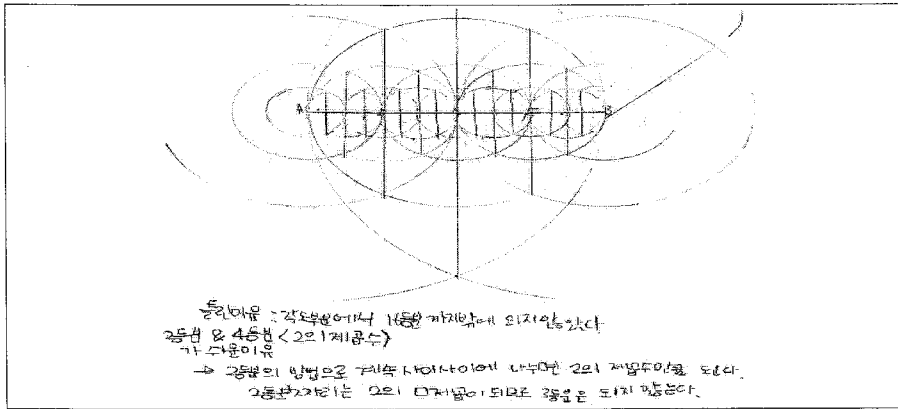 A B
틀린이유 : 각도부분에서 16등분까지밖에 되지않았다
2등분 & 4등분 <2의 제곱수>
가 쉬운이유
→ 2등분의 방법으로 계속 사이사이에 나누면 2의 제곱수만큼 된다.
2의 제곱이 되므로 3등분은 되지 않는다.